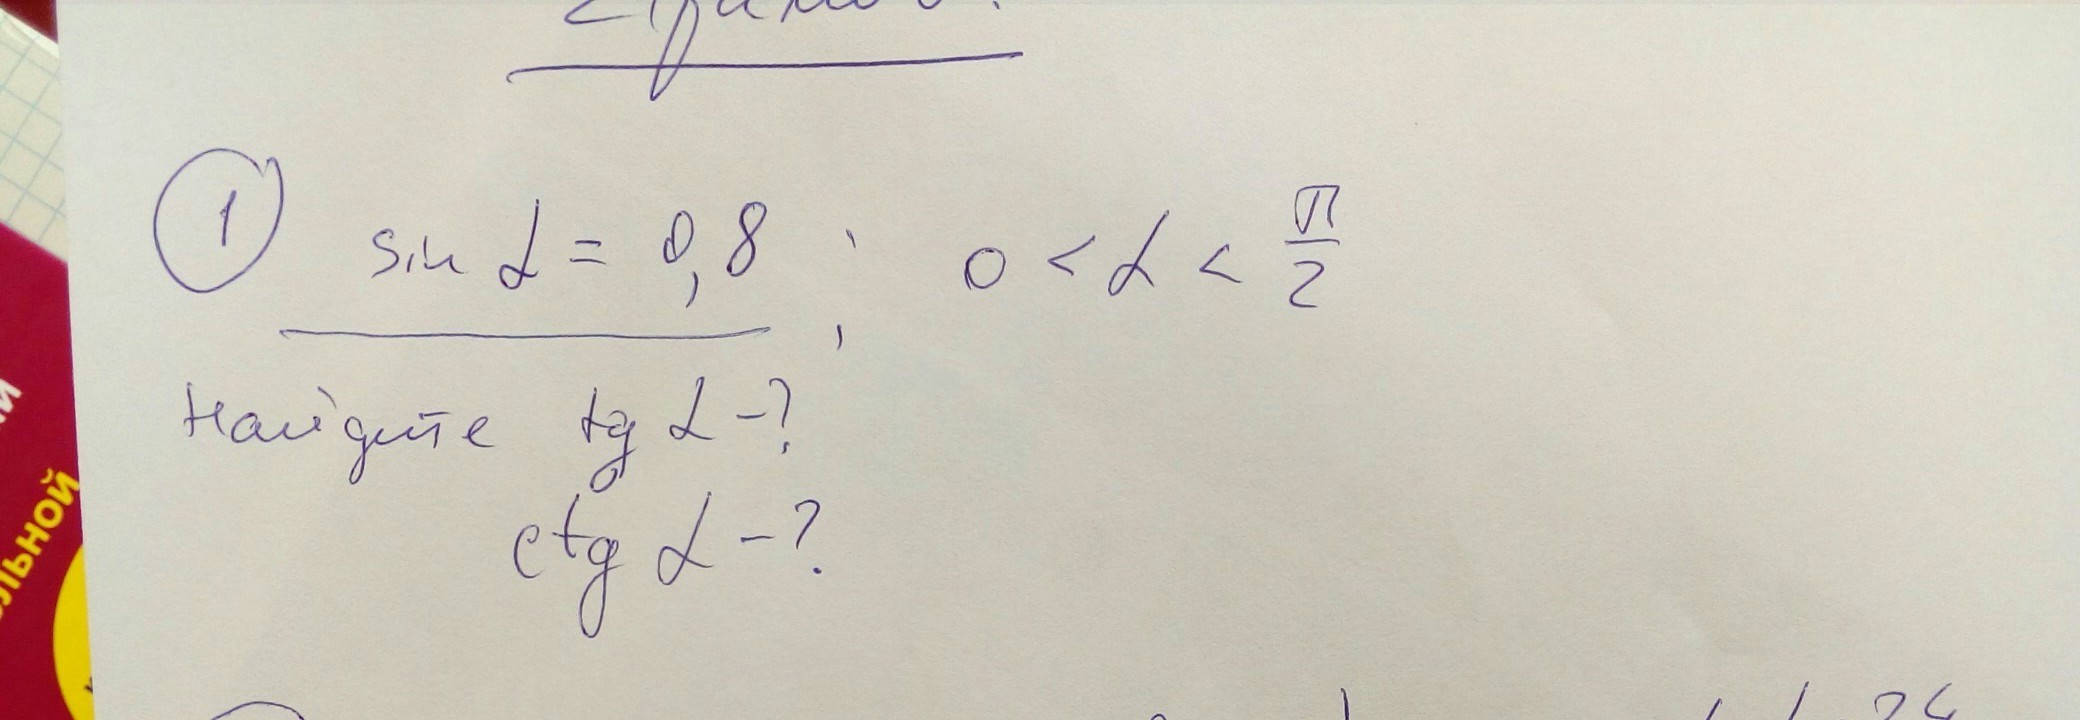 1 sin α = 0,8 ; 0 < α < π/2
Найдите tg α -?
ctg α -?
ольной